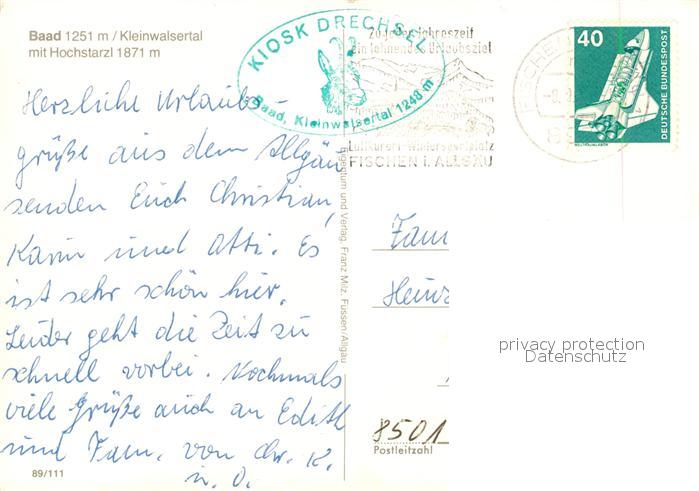 Baad 1251 m / Kleinwalsertal
mit Hochstarzl 1871 m
Herzliche Urlaubs-
grüße aus dem Allgäu
senden Euch Christian,
Karin und Otti. Es
ist sehr schön hier.
Leider geht die Zeit zu
schnell vorbei. Nochmals
viele Grüße auch an Edith
und Fam. von Chr. K.
u. O.
89/111
KIOSK DRECHSEL
Baad, Kleinwalsertal 1248 m
Zu jeder Jahreszeit
ein lohnendes Urlaubsziel
Luftkurort-Wintersportplatz
FISCHEN i. ALLGÄU
Eigentum und Verlag, Franz Milz, Füssen/Allgäu
40
DEUTSCHE BUNDESPOST
WELTRAUMLABOR
Fam
Heinz
privacy protection
Datenschutz
8501
Postleitzahl